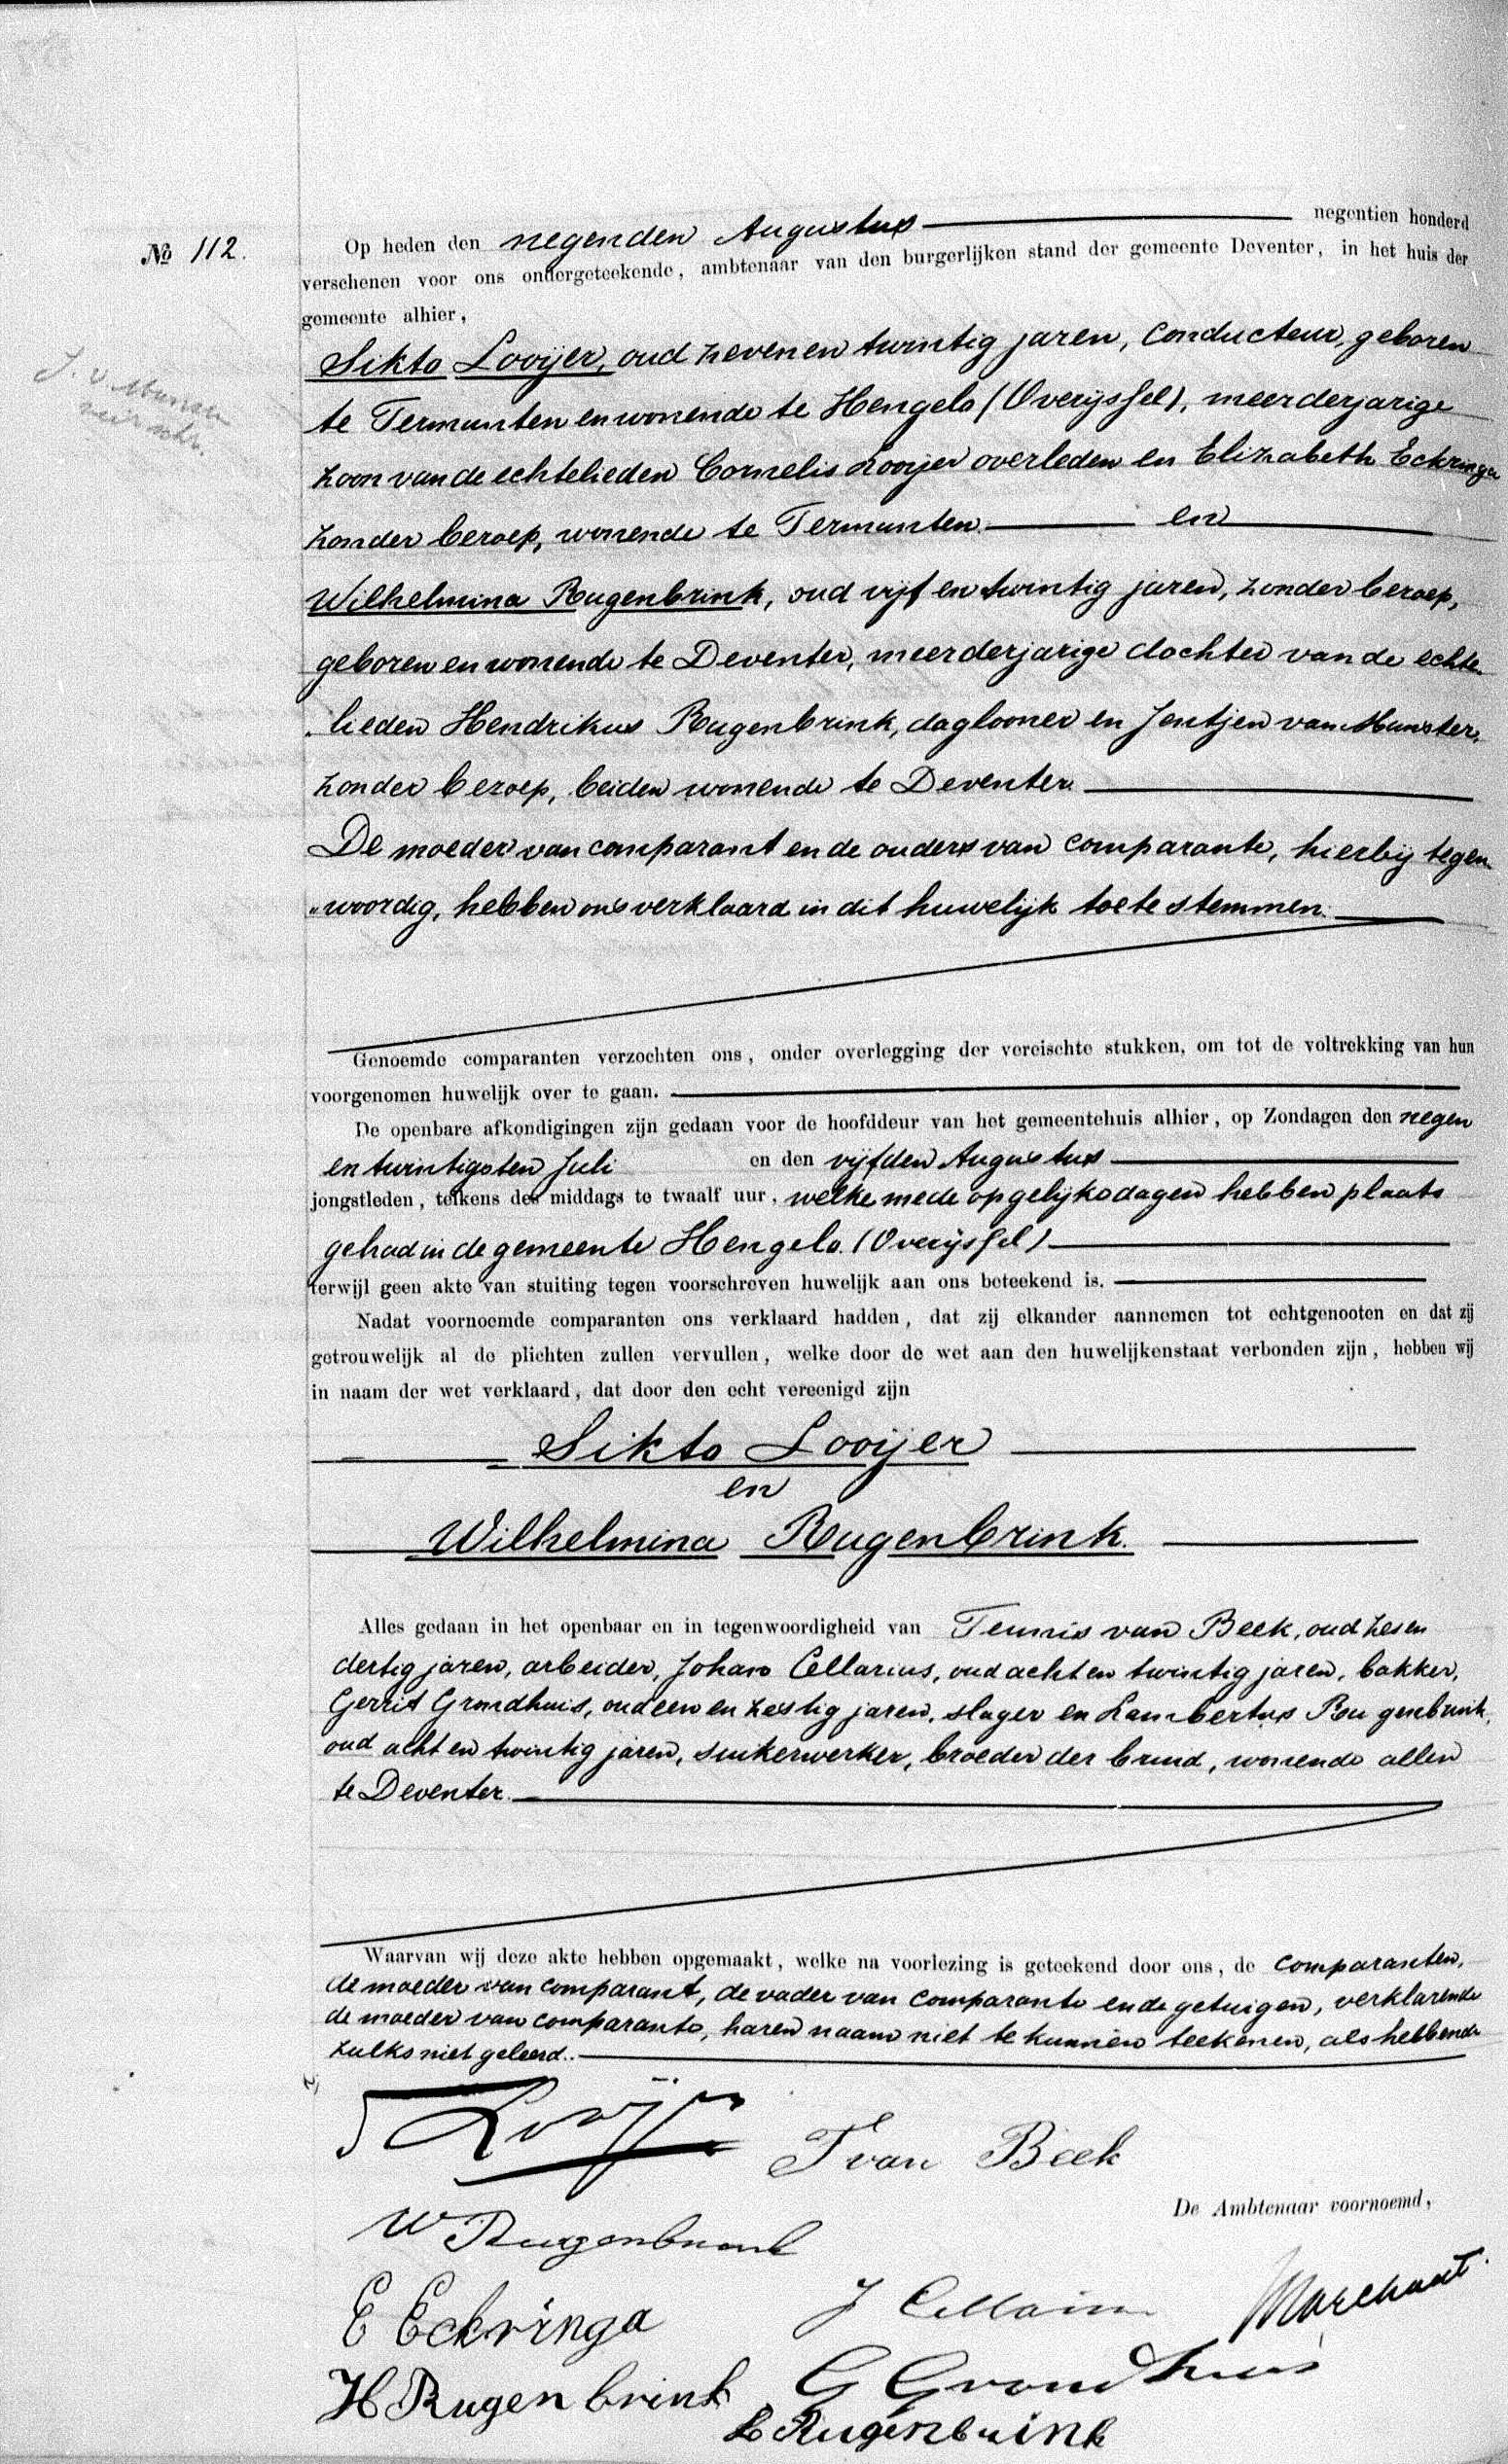 № 112.
Op heden den negenden Augustus negentien honderd
verschenen voor ons ondergeteekende, ambtenaar van den burgerlijken stand der gemeente Deventer, in het huis der
gemeente alhier,
Sikto Looijer, oud zeven en twintig jaren, conducteur, geboren
te Termunten en wonende te Hengelo (Overijssel), meerderjarige
zoon van de echtelieden Cornelis Looijer overleden en Elizabeth Eckringa
zonder beroep, wonende te Termunten. en
Wilhelmina Rugenbrink, oud vijf en twintig jaren, zonder beroep,
geboren en wonende te Deventer, meerderjarige dochter van de echte-
lieden Hendrikus Rugenbrink, daglooner en Jentjen van Munster,
zonder beroep, beiden wonende te Deventer.
De moeder van comparant en de ouders van comparante, hierbij tegen-
woordig, hebben ons verklaard in dit huwelijk toe te stemmen.
Genoemde comparanten verzochten ons, onder overlegging der vereischte stukken, om tot de voltrekking van hun
voorgenomen huwelijk over te gaan.
De openbare afkondigingen zijn gedaan voor de hoofddeur van het gemeentehuis alhier, op Zondagen den negen
en twintigsten Juli en den vijfden Augustus
jongstleden, telkens des middags te twaalf uur, welke mede op gelijke dagen hebben plaats
gehad in de gemeente Hengelo. (Overijssel)
terwijl geen akte van stuiting tegen voorschreven huwelijk aan ons beteekend is.
Nadat voornoemde comparanten ons verklaard hadden, dat zij elkander aannemen tot echtgenooten en dat zij
getrouwelijk al de plichten zullen vervullen, welke door de wet aan den huwelijkenstaat verbonden zijn, hebben wij
in naam der wet verklaard, dat door den echt vereenigd zijn
Sikto Looijer
en
Wilhelmina Rugenbrink.
Alles gedaan in het openbaar en in tegenwoordigheid van Teunis van Beek, oud zes en
dertig jaren, arbeider, Johan Cellarius, oud acht en twintig jaren, bakker,
Gerrit Grondhuis, oud een en zestig jaren, slager en Lambertus Rugenbrink,
oud acht en twintig jaren, suikerwerker, broeder der bruid, wonende allen
te Deventer.
Waarvan wij deze akte hebben opgemaakt, welke na voorlezing is geteekend door ons, de comparanten,
de moeder van comparant, de vader van comparante en de getuigen, verklarende
de moeder van comparante, haren naam niet te kunnen teekenen, als hebbende
zulks niet geleerd.
S Looijer
T van Beek
De Ambtenaar voornoemd,
W Rugenbrink
E Eckringa
J Cellarius
Marchant
H Rugenbrink
G Grondhuis
L Rugenbrink